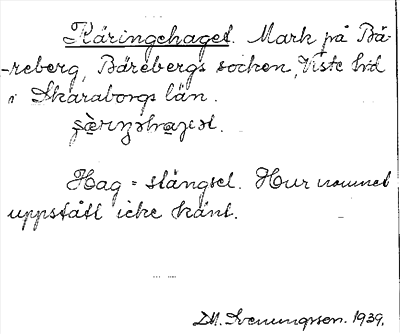 Käringehaget. Mark på Bä-
-reberg, Bärebergs socken, Viste hrd
i Skaraborgs län.
Hag = stängsel. Hur namnet
uppstått icke känt.
D.M. Svenungsson. 1939.